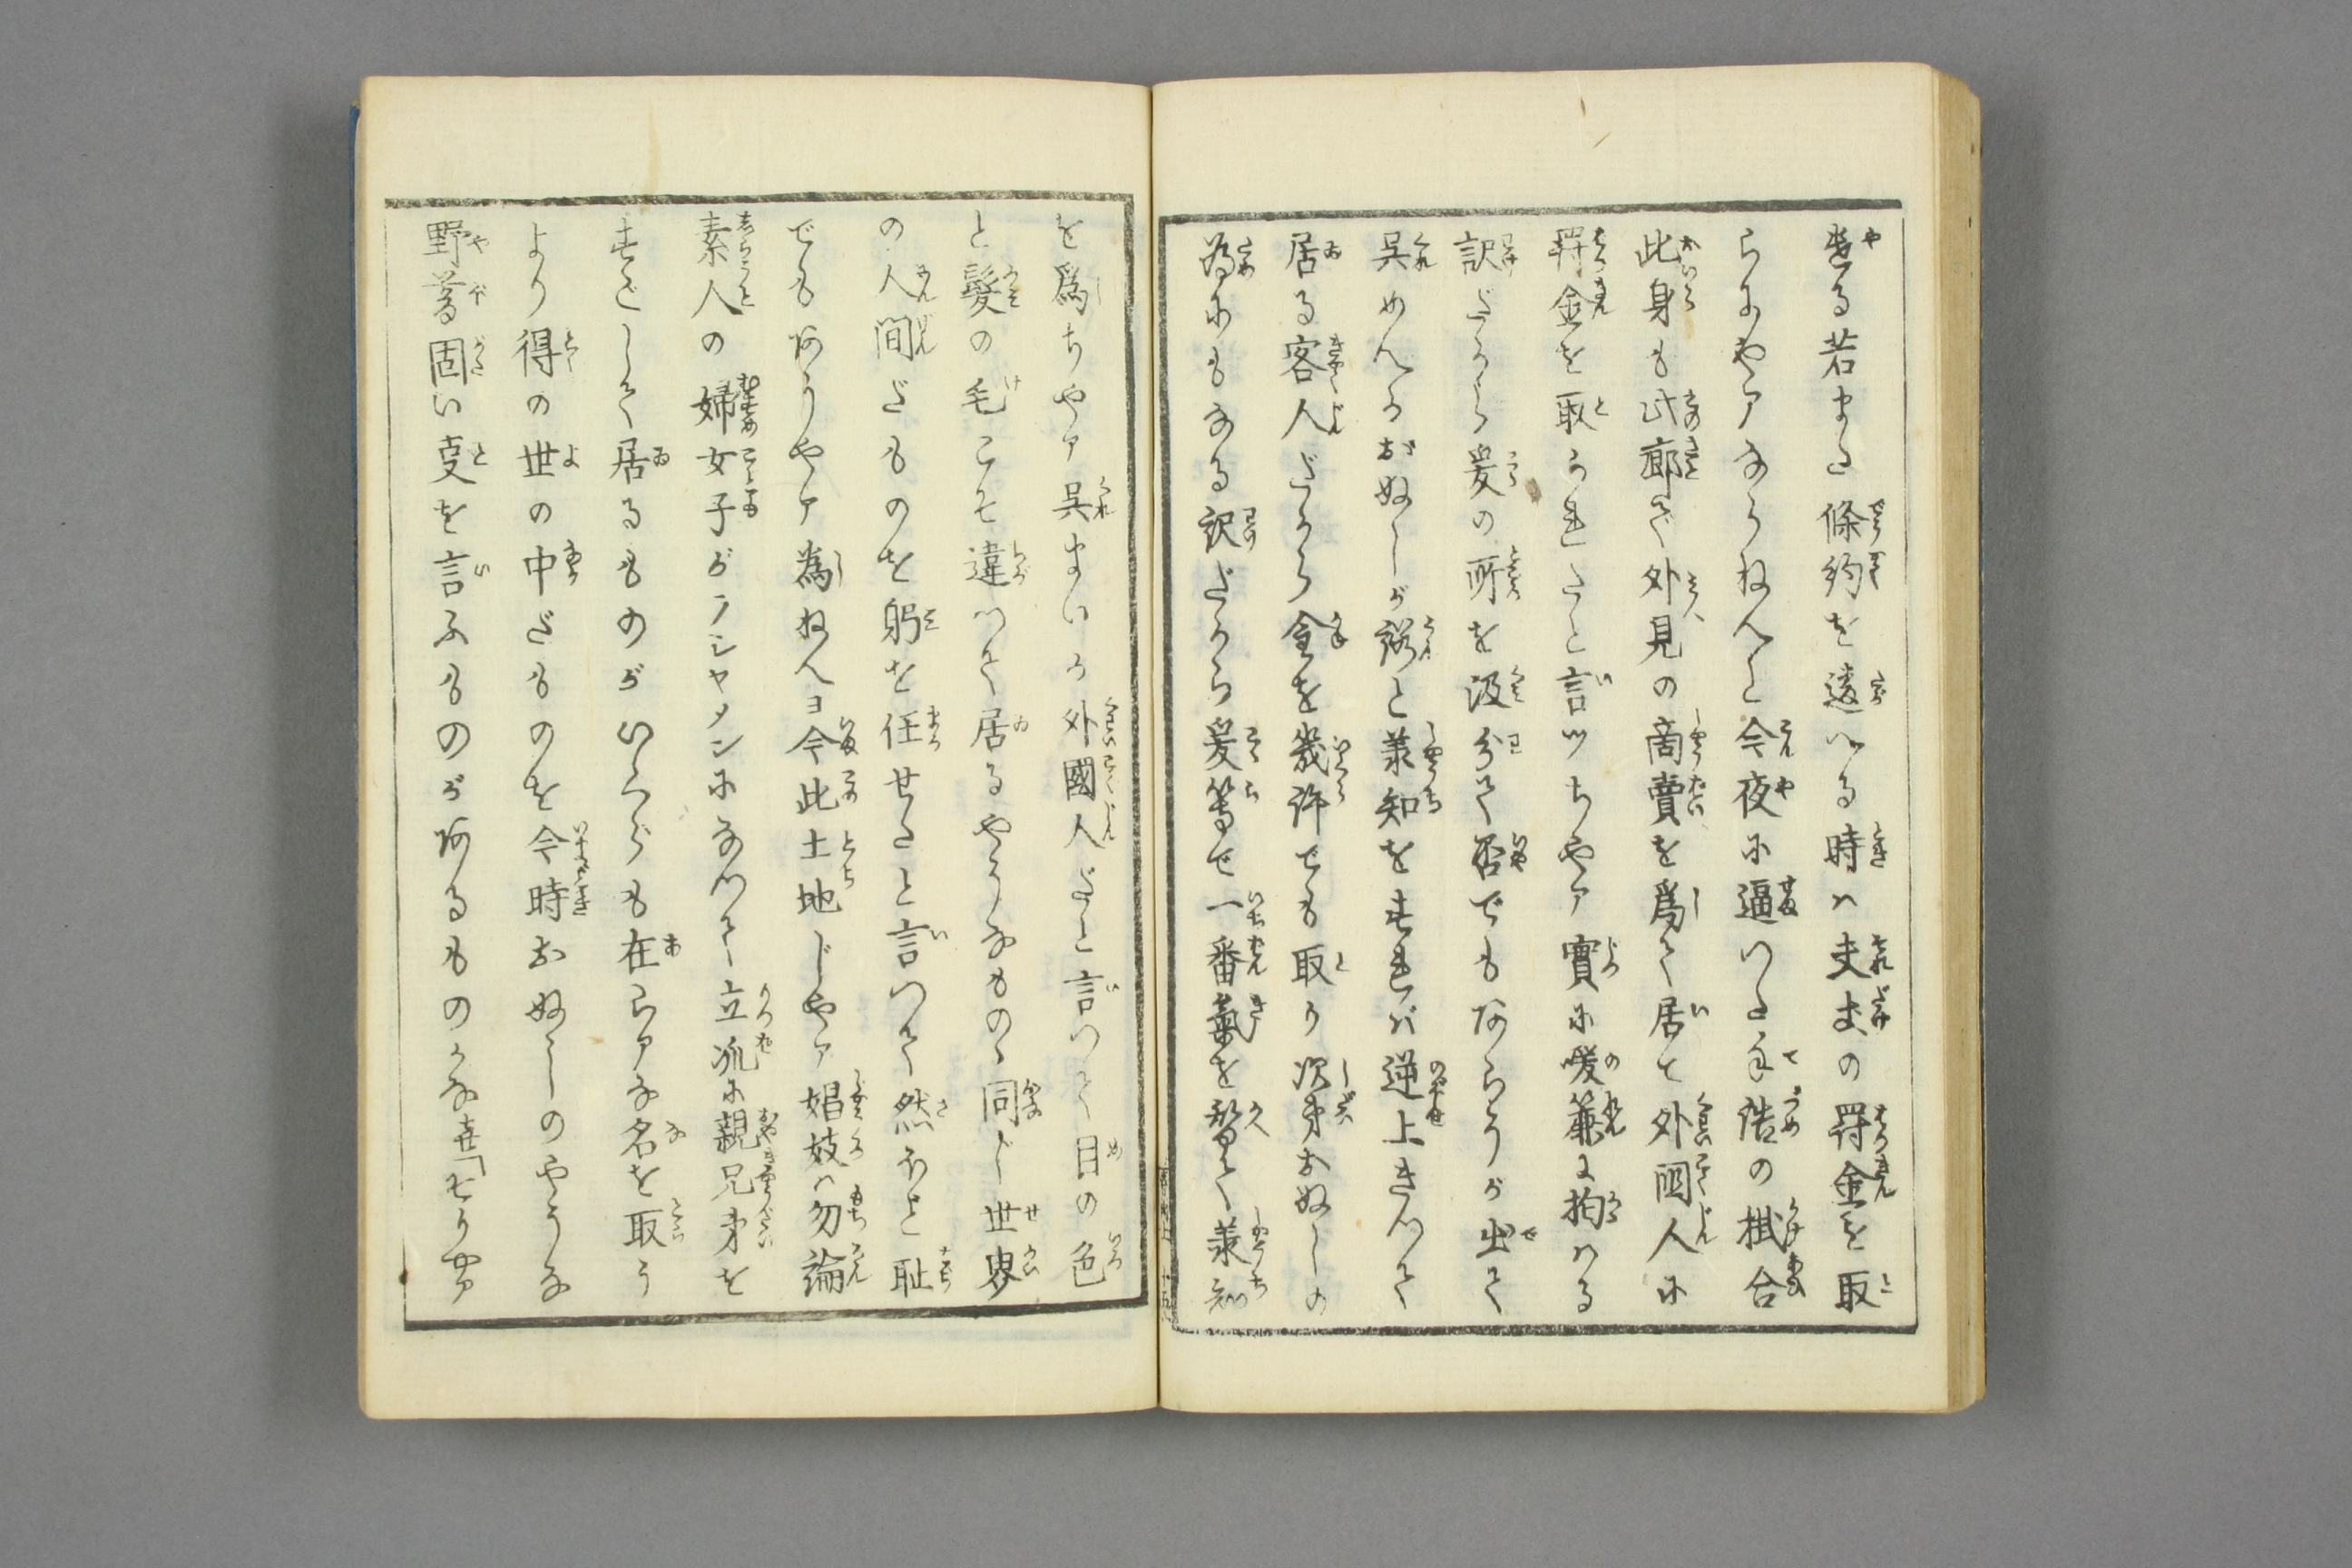 遣る若また條約を違へる時ハ夫丈の罸金を取
らにやアならねへと今夜に逼つた手詰の掛合
此身も此廓で外見の商賣を爲て居て外國人に
罸金を取られたと言ツちやア實に暖簾に拘ハる
訳だから爰の所を汲分て否でもあらうが出て
呉めへかおぬしが諾と承知をすれバ逆上きつて
居る客人だから金を幾許でも取り次第おぬしの
為にもなる訳だから爰等で一番氣を替て承知
を爲ちやア呉まいか外國人だと言つて目の色
と髮の毛こそ違つて居るやうなものゝ同じ世界
の人間だものを躬を任せたと言つて然のと耻
でもありやア為ねへヨ今此土地じやア娼妓ハ勿論
素人の婦女子がラシヤメンになつて立派に親兄弟を
すごして居るものがいくらも在らアな名を取う
より得の世の中だものを今時おぬしのやうな
野暮固い事を言ふものがあるものかな㐂「そりやア